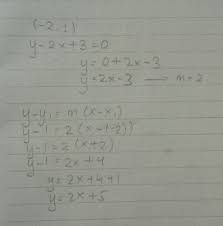 (-2, 1)
y-2x+3=0
y=0+2x-3
y=2x-3 → m=2
y-y₁=m(x-x₁)
y-1=2(x-(-2))
y-1=2(x+2)
y-1=2x+4
y=2x+4+1
y=2x+5